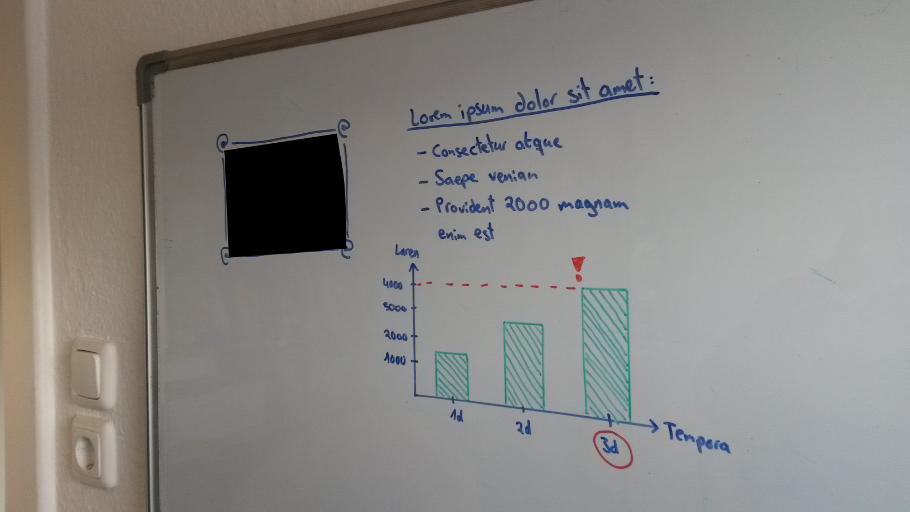 Lorem ipsum dolor sit amet:
- Consectetur atque
- Saepe veniam
- Provident 2000 magnam
enim est
Lorem
!
4000
3000
2000
1000
1d
2d
3d
Tempora